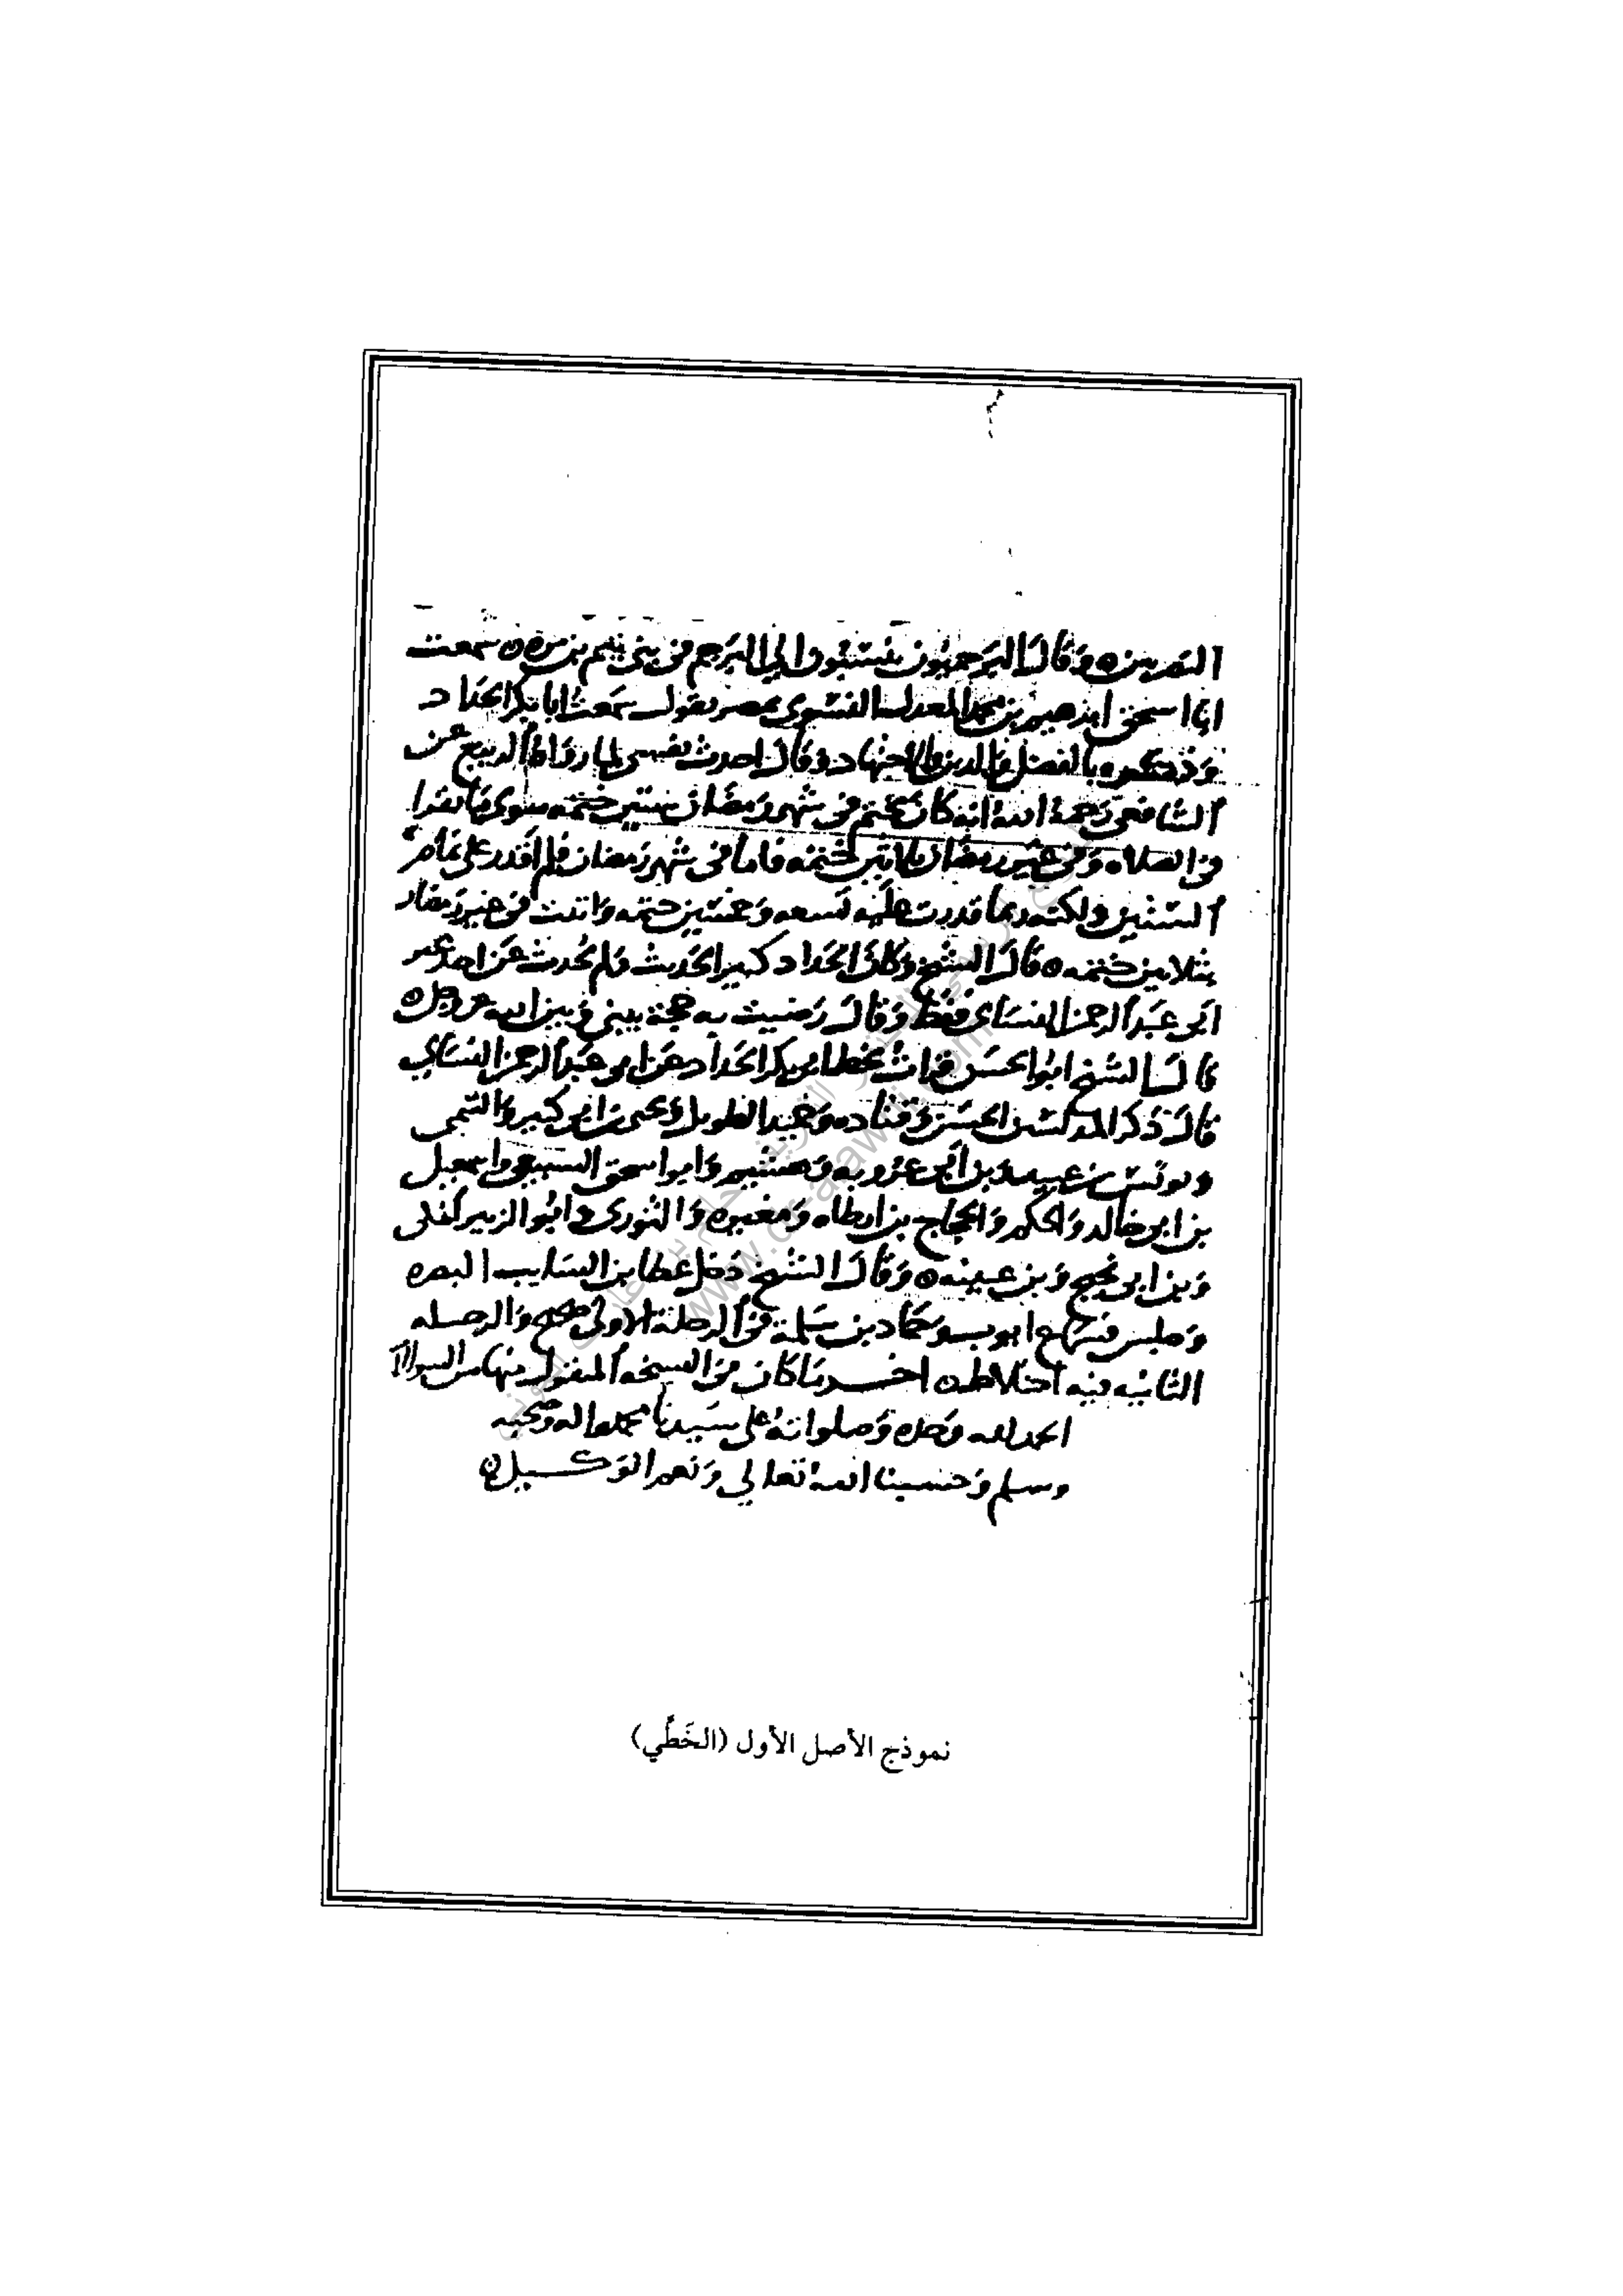 البصريين ه وقال البرجميون ينسبون الي البرجم من بني تميم بن مره ه سمعت
ابا اسحق ابرهيم بن محمد المعدل النسوي بمصر يقول سمعت ابا بكر الحداد
وذكره بالفضل والدين والاجتهاد وقال احدث نفسي بما رواه الربيع عن
الشافعي رحمة الله انه كان يختم في شهر رمضان ستين ختمه سوي ما يقرا
في الصلاه وفي غير رمضان ثلاثين ختمه فاما في شهر رمضان فلم اقدر علي تمام
الستين ولكنه ما قدرت عليه تسعه وخمسين ختمه واتيت في غير رمضان
بثلاثين ختمه ه قال الشيخ وكان الحداد كبير الحديث ولم يحدث عن احد غير
ابي عبد الرحمن النساي فقط وقال رضيت به حجة بيني وبين الله عز وجل ه
قال الشيخ ابو الحسن قرات بخط ابي بكر الحداد عن ابي عبد الرحمن النساي
قال ذكر المدلسين الحسن وقتاده وحميد الطويل ويحيى بن ابي كثير والتيمي
ويونس بن عبيد وبن ابي عروبه وهشيم وابو اسحق السبيعي واسمعيل
بن ابي خالد والحكم والحجاج بن ارطاه ومغيره والثوري وابو الزبير المكي
وبن ابي نجيح وبن عيينه ه وقال الشيخ دخل عطا بن السايب البصره
وجلس فسماع ايوب وحماد بن سلمة في الرحلة الاولي صحيح والرحله
الثانيه فيه اختلاط ه اخر ما كان في النسخه المنقول منها من السوالات
الحمد لله وحده وصلواته علي سيدنا محمد واله وصحبه
وسلم وحسبنا الله تعالي ونعم الوكيل ه
نموذج الأصل الأول (الخَطِّي)